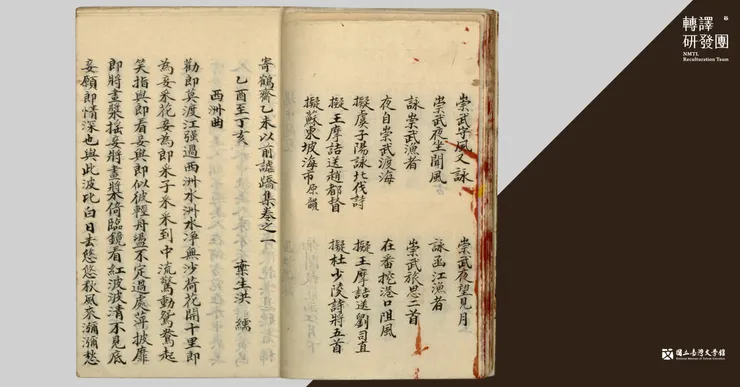 轉譯
研發團
NMTL
Reculturation Team
崇武守風又詠 崇武夜望見月
崇武夜坐聞風 詠函江漁者
詠崇武漁者 崇武旅思二首
夜自崇武渡海 在番挖港口阻風
擬虞子陽詠北伐詩 擬王摩詰送劉司直
擬王摩詰送趙都督 擬杜少陵詩將五首
擬蘇東坡海市原韻
寄鶴齋乙未以前謔蹻集卷之一
乙酉至丁亥 葉生洪 繻
西洲曲
勸郎莫渡江強過西洲水洲水淨無沙荷花開十里郎
為妾采花妾為郎采子采采到中流驚動鴛鴦起
笑指與郎看妾與郎似彼輕舟盪不定過處萍披靡
郎將畫槳搖妾將畫槳倚臨鏡看紅波波清不見底
妾願郎情深也與此波比白日去悠悠秋風來瀰瀰愁
國立台灣文學館
National Museum of Taiwan Literature